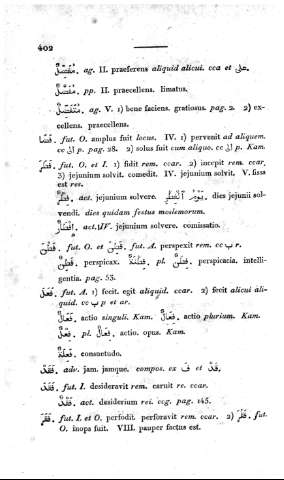 402
مُفَضِّلٌ. ag. II. praeferens aliquid alicui. cca et عَلى.
مُفَضَّلٌ. pp. II. praecellens. limatus.
مُتَفَضِّلٌ. ag. V. 1) bene faciens. gratiosus. pag. 2. 2) ex-
cellens. praecellens.
فَضَا. fut. O. amplus fuit locus. IV. 1) pervenit ad aliquem.
cc إلى p. pag. 28. 2) solus fuit cum aliquo. cc إلى p. Kam.
فَطَرَ. fut. O. et I. 1) fidit rem. ccar. 2) incepit rem. ccar.
3) jejunium solvit. comedit. IV. jejunium solvit. V. fissa
est res.
فِطْرٌ. act. jejunium solvere. يَوْمُ ٱلْفِطْرِ. dies jejunii sol-
vendi. dies quidam festus moslemorum.
إِفْطَارٌ. act. IV. jejunium solvere. comissatio.
فَطُنَ. fut. O. et فَطِنَ. fut. A. perspexit rem. cc ب r.
فَطِنٌ. perspicax. فِطْنَةٌ. pl. فِطَنٌ. perspicacia. intelli-
gentia. pag. 53.
فَعَلَ. fut. A. 1) fecit. egit aliquid. ccar. 2) fecit alicui ali-
quid. cc ب p et ar.
فَعَالٌ. actio singuli. Kam. فِعَالٌ. actio plurium. Kam.
فِعْلٌ. pl. فِعَالٌ. actio. opus. Kam.
فَعْلَةٌ. consuetudo.
فَقَدْ. adv. jam. jamque. compos. ex فَ et قَدْ.
فَقَدَ. fut. I. desideravit rem. caruit re. ccar.
فَقْدٌ. act. desiderium rei. ccg. pag. 145.
فَقَرَ. fut. I. et O. perfodit. perforavit rem. ccar. 2) فَقُرَ. fut.
O. inops fuit. VIII. pauper factus est.